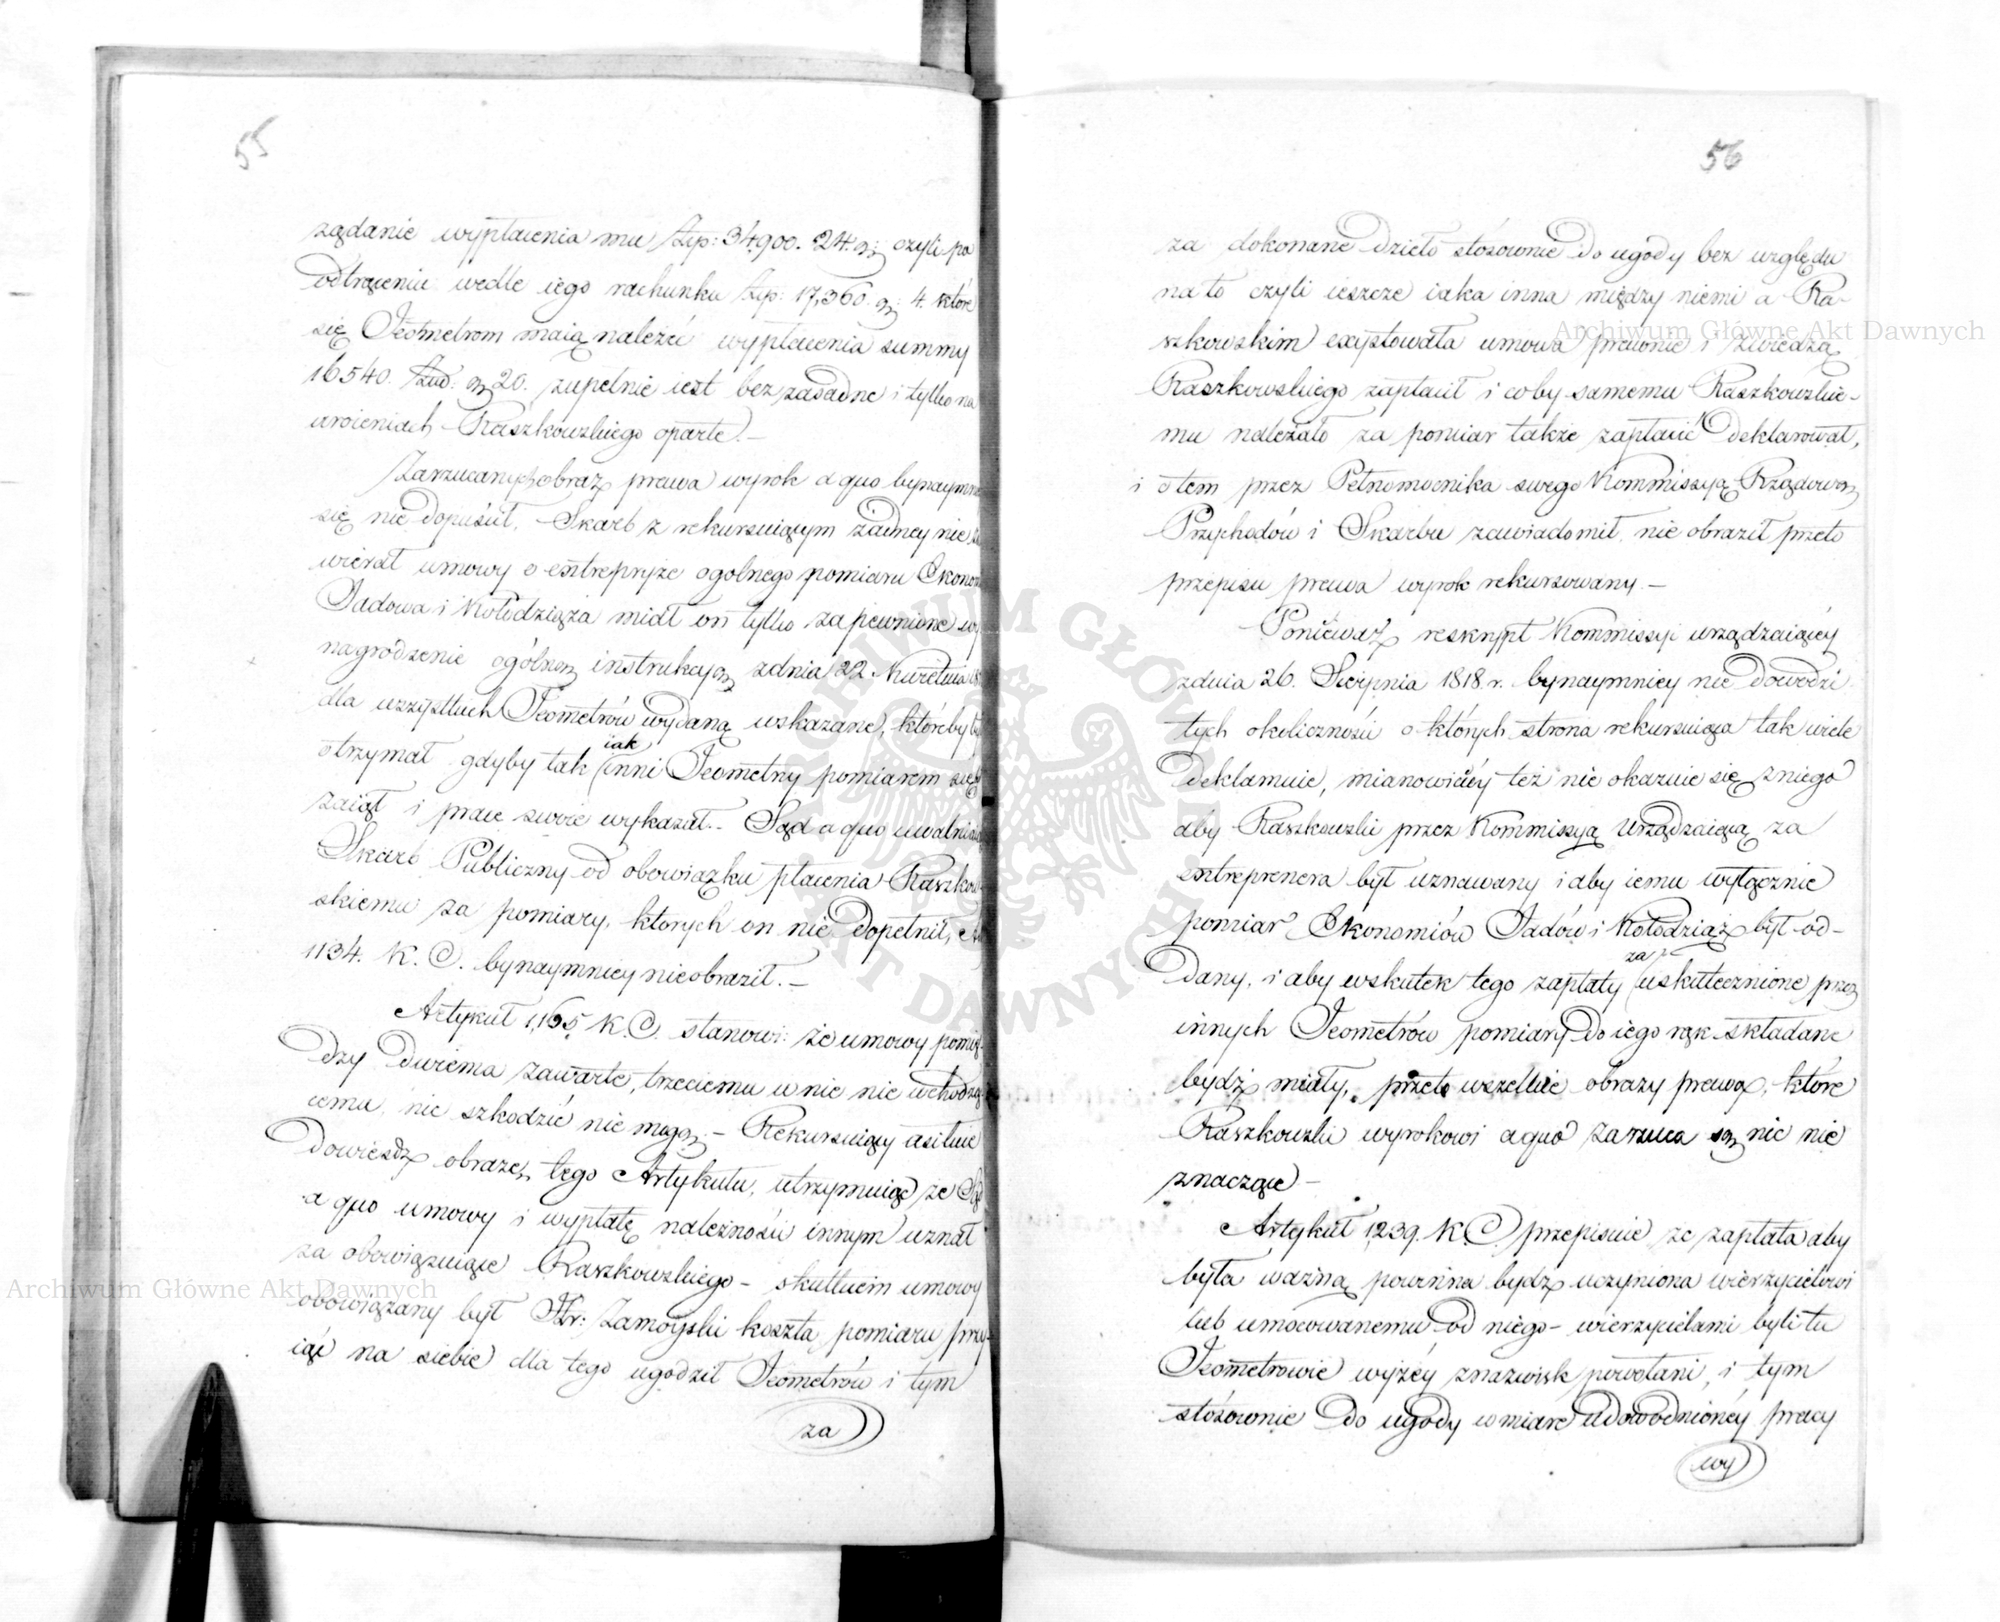 55
żądanie wypłacenia mu złp: 34900. 24. gr czyli po
odtrąceniu wedle iego rachunku złp: 17,360. gr: 4. które
się Jeometrom maią należeć wypłacenia summy
16540. gr 20. zupełnie iest bezzasadne i tylko na
uroieniach Raszkowskiego oparte. –
Zarzucanych obraz prawa wyrok a quo bynaymn
się nie dopuścił, Skarb z rekursuiącym żadney nie
wierał umowy o entrepryże ogolnego pomiaru Ekonom
Jadowa i Kołodziąża miał on tylko zapewnione wy
nagrodzenie ogólną instrukcyą z dnia 22. Kwietnia
dla wszystkich Jeometrów wydaną wskazane, któreby
otrzymał gdyby tak iak inni Jeometry pomiarem się
zaiął i pracę swoię wykazał. – Sąd a quo uwalniaią
Skarb Publiczny od obowiązku płacenia Raszkow
skiemu za pomiary, ktorych on nie dopełnił, A
1134. K. C. bynaymniey nieobraził. –
Artykuł 1,165 K. C. stanowi: że umowy pomię
dzy dwiema zawarte, trzeciemu w nie nie wchodzą
cemu, nic szkodzić nie mogą. – Rekursuiący usiłuie
dowieśdź obrazę tego Artykułu, utrzymuiąc że Sąd
a quo umowy i wypłatę należności innym uznał
za obowiązuiące Raszkowskiego – skutkiem umowy
obowiązany był Hr: Zamoyski koszta pomiaru przy-
iąć na siebie dla tego ugodził Jeometrów i tym
za
56
za dokonane dzieło stósownie do ugody bez względu
na to czyli ieszcze iaka inna między niemi a Ra-
szkowskim exystowała umowa prawnie i z wiedzą
Raszkowskiego zapłacił i coby samemu Raszkowskie-
mu należało za pomiar także zapłacić deklarował,
i o tem przez Pełnomocnika swego Kommissyą Rządową
Przychodów i Skarbu zawiadomił, nie obraził przeto
przepisu prawa wyrok rekursowany. –
Ponieważ reskrypt Kommissyi urządzaiącéy
z dnia 26. Sierpnia 1818. r. bynaymniey nie dowodzi
tych okoliczności o których strona rekursuiąca tak wiele
deklamuie, mianowicićy też nie okazuie się z niego
aby Raszkowski przez Kommissyą Urządzaiącą za
entreprenera był uznawany i aby iemu wyłącznie
pomiar Ekonomiów Jadów i Kołodziąż był od-
dany, i aby wskutek tego zapłaty za uskutecznione przez
innych Jeometrów pomiary do iego rąk składane
bydź miały, przeto wszelkie obrazy prawa, które
Raszkowski wyrokowi a quo zarzuca są nic nie
znaczące –
Artykuł 1239. K. C. przepisuie że zapłata aby
była ważną powinna bydź uczyniona wierzycielowi
lub umocowanemu od niego – wierzycielami byli tu
Jeometrowie wyżéy z nazwisk powołani, i tym
stósownie do ugody w miarę udowodnionéy pracy
wy
Archiwum Główne Akt Dawnych
Archiwum Główne Akt Dawnych
ARCHIWUM GŁÓWNE AKT DAWNYCH